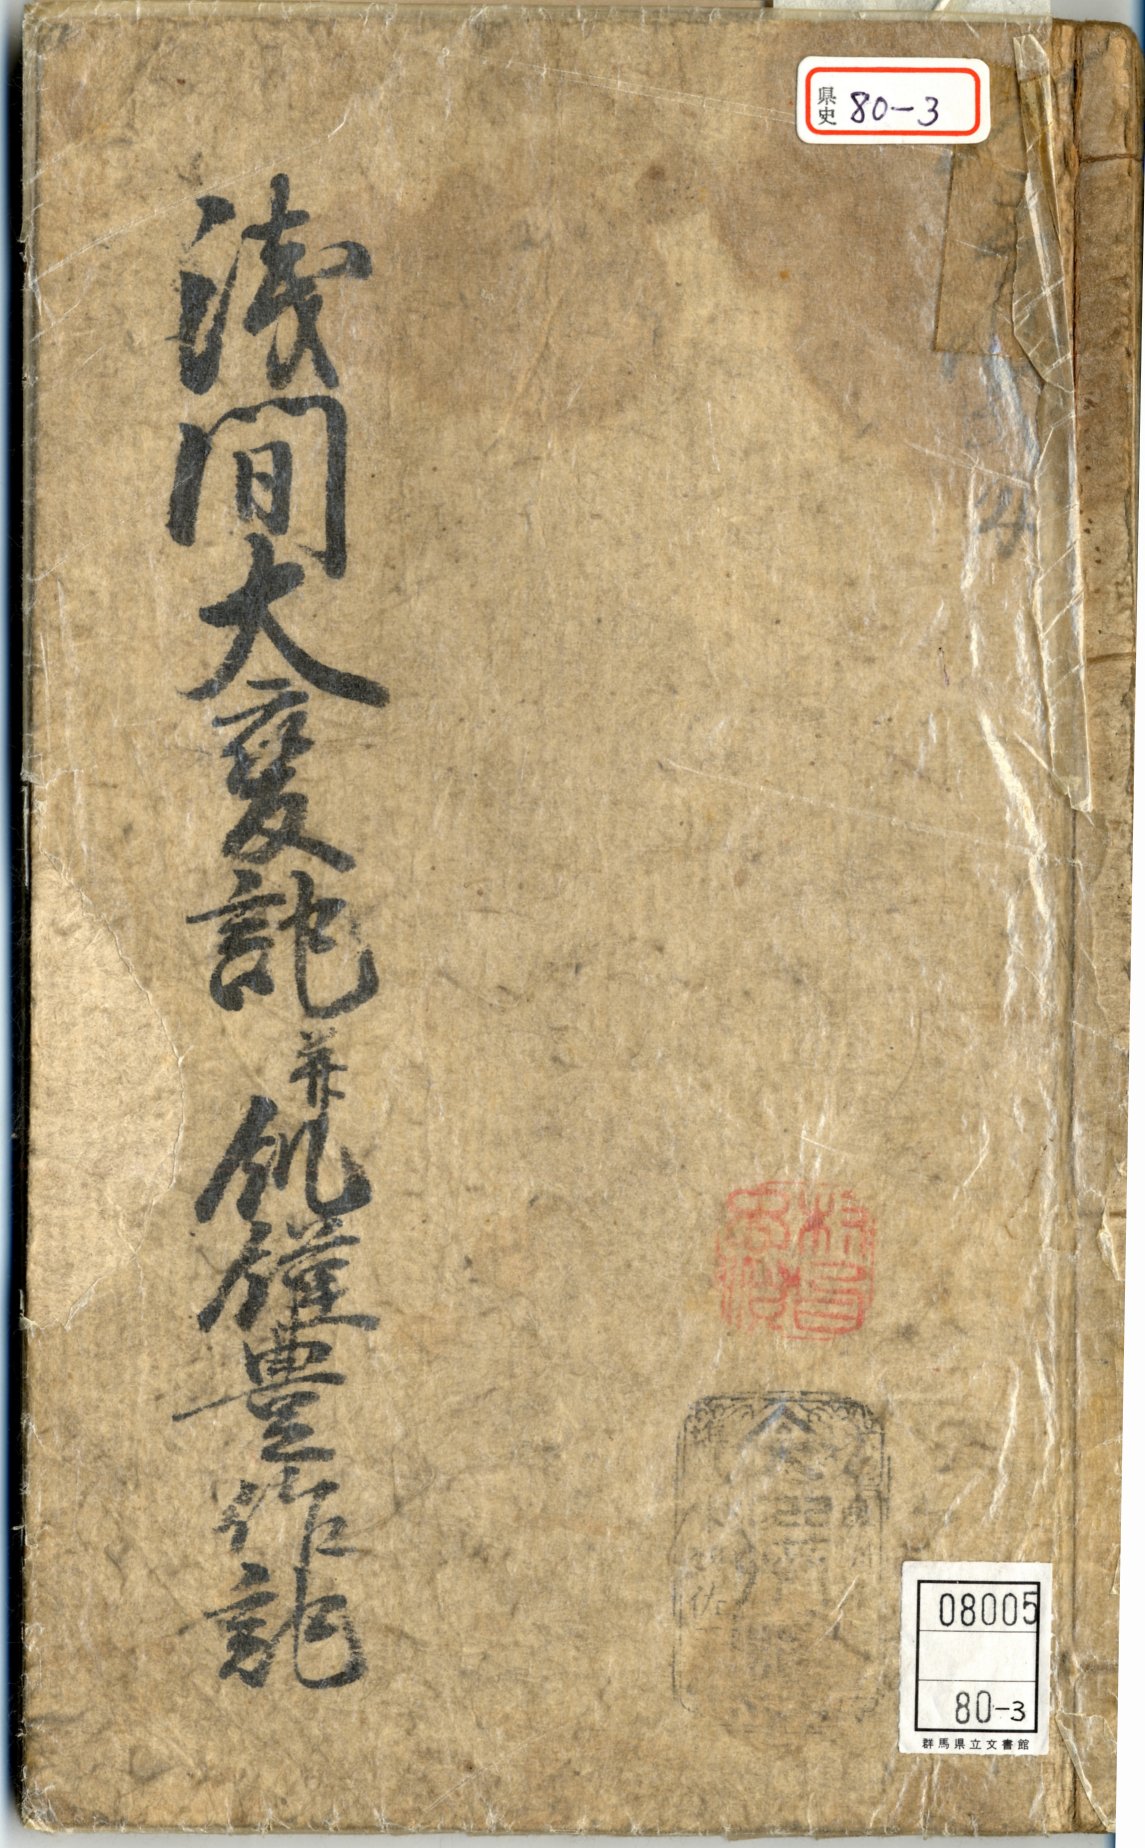 県史 80-3
浅間大変記并飢饉豊作記
08005
80-3
群馬県立文書館